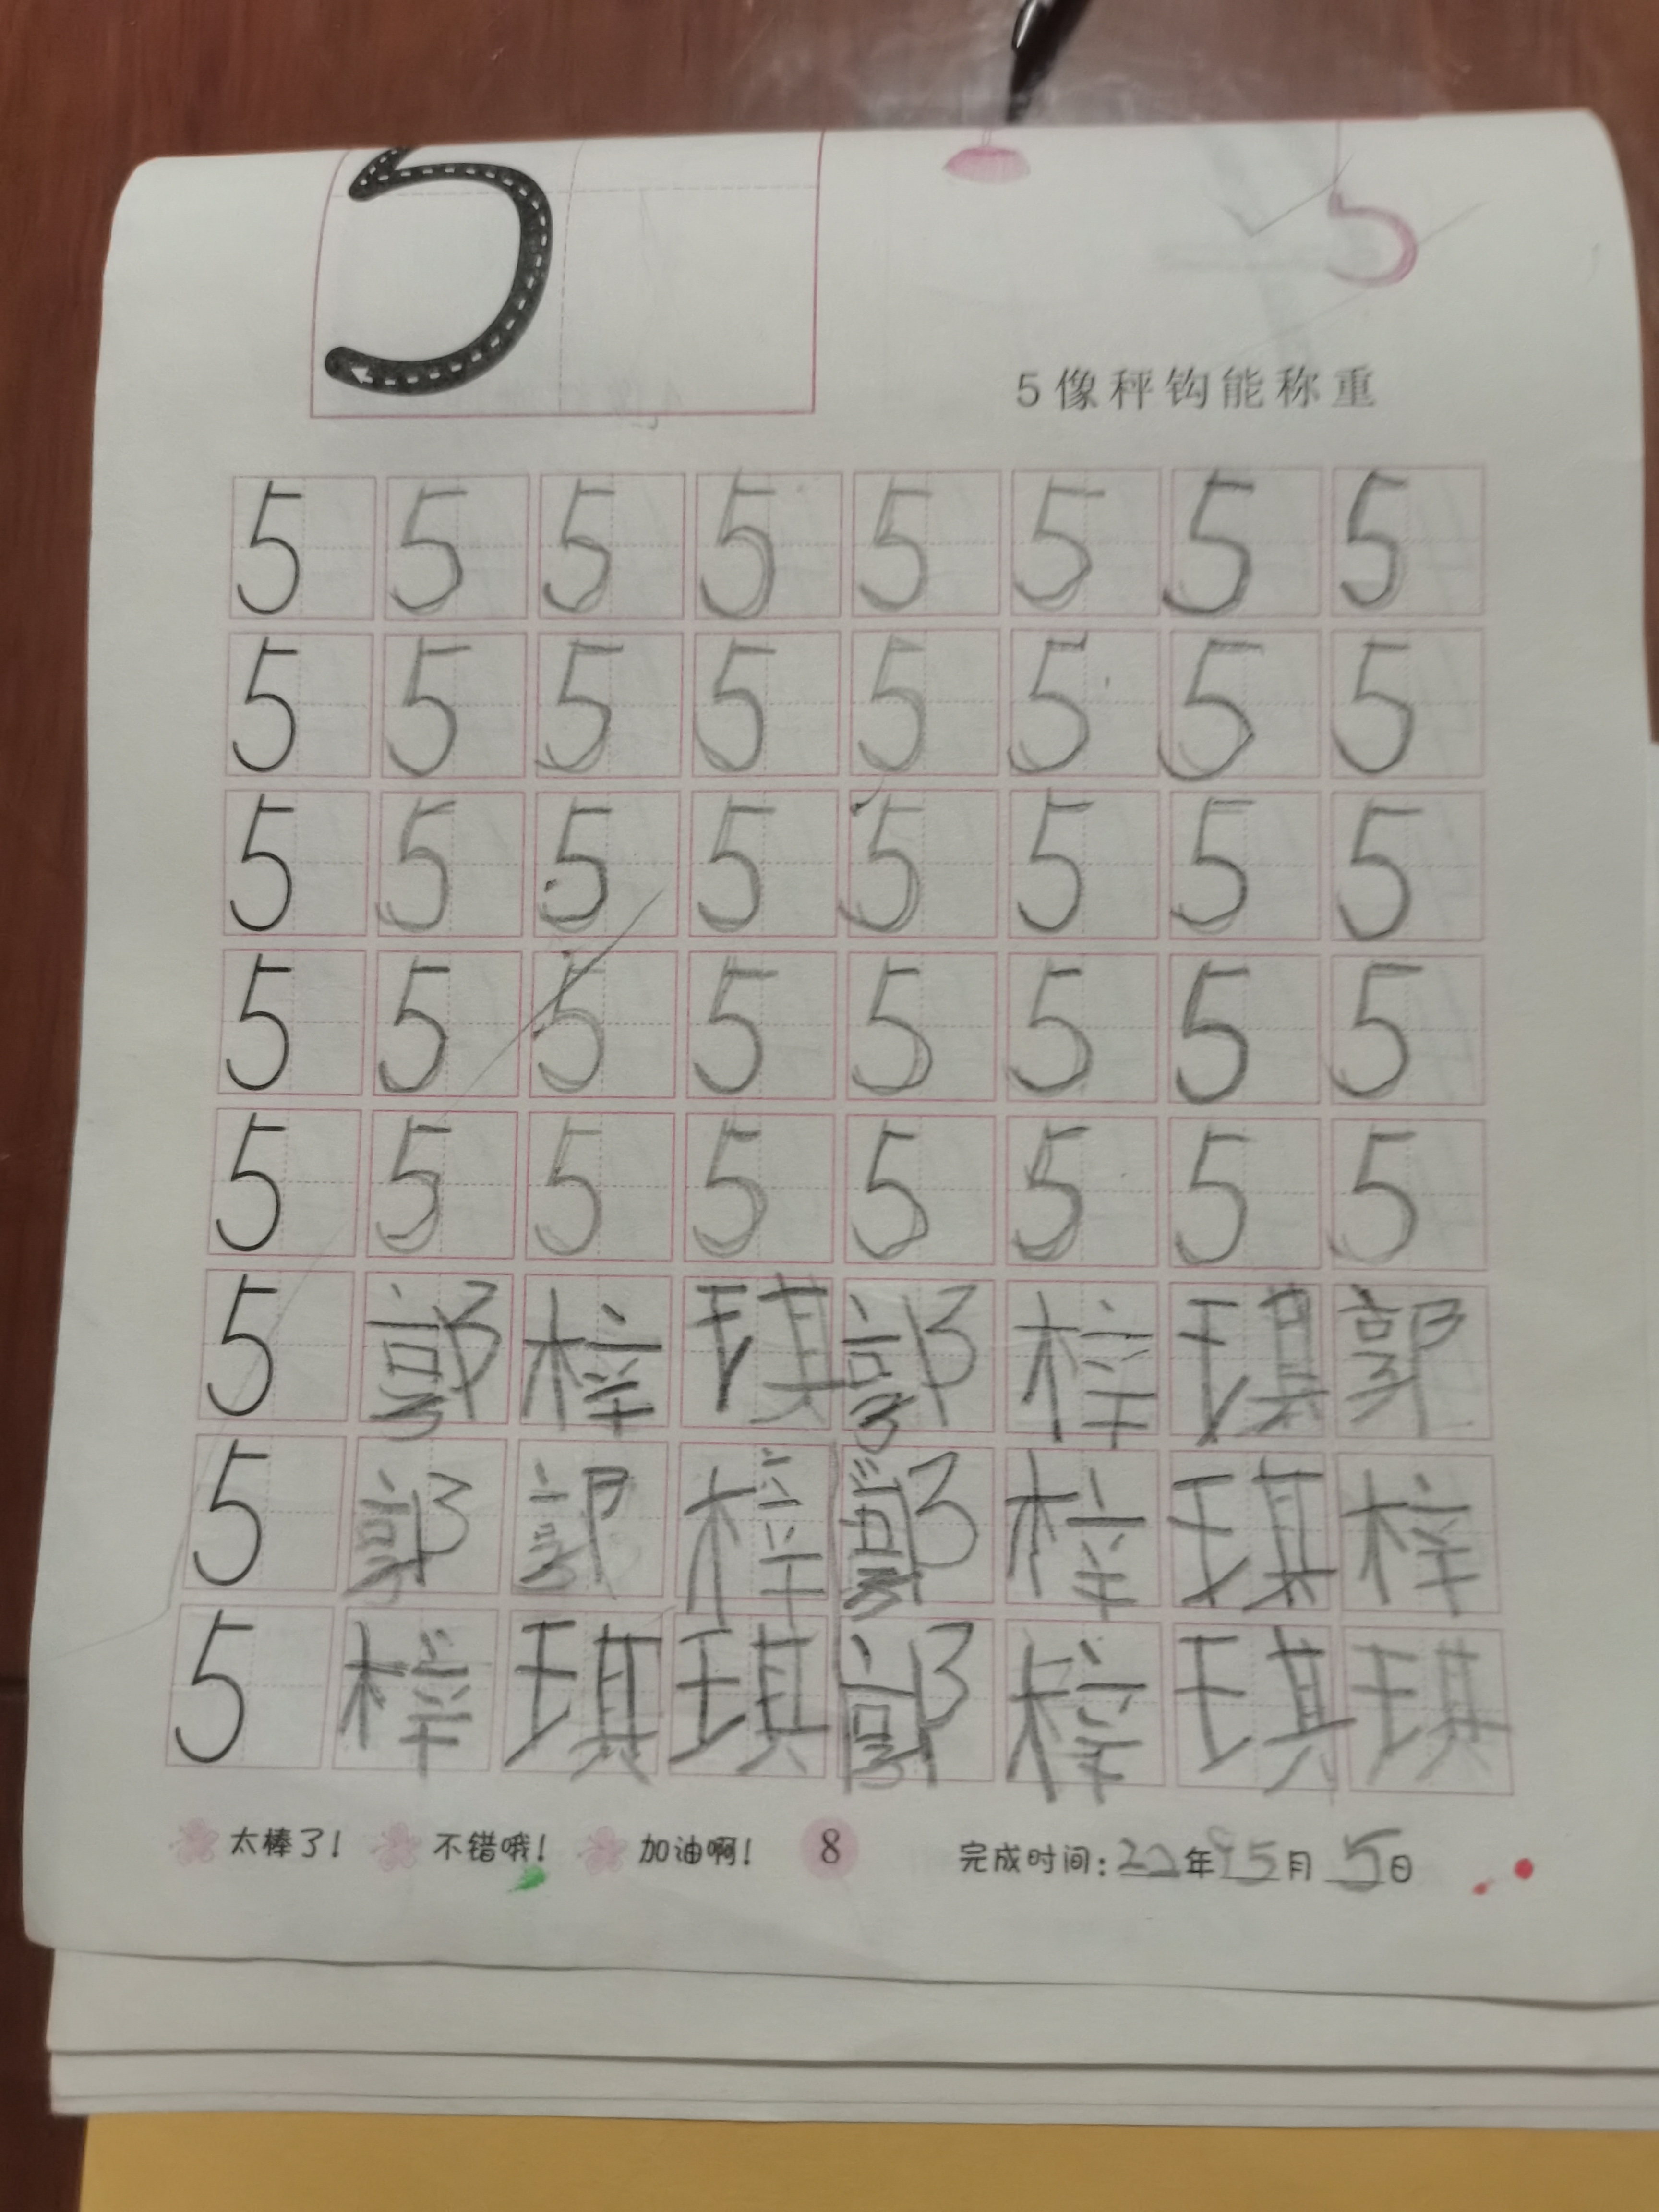 5
5像秤钩能称重
5 5 5 5 5 5 5 5
5 5 5 5 5 5 5 5
5 5 5 5 5 5 5 5
5 5 5 5 5 5 5 5
5 5 5 5 5 5 5 5
5 郭 梓 琪 郭 梓 琪 郭
5 郭 郭 梓 郭 梓 琪 梓
5 梓 琪 琪 郭 梓 琪 琪
太棒了! 不错哦! 加油啊! 8 完成时间:22年 5月 5日